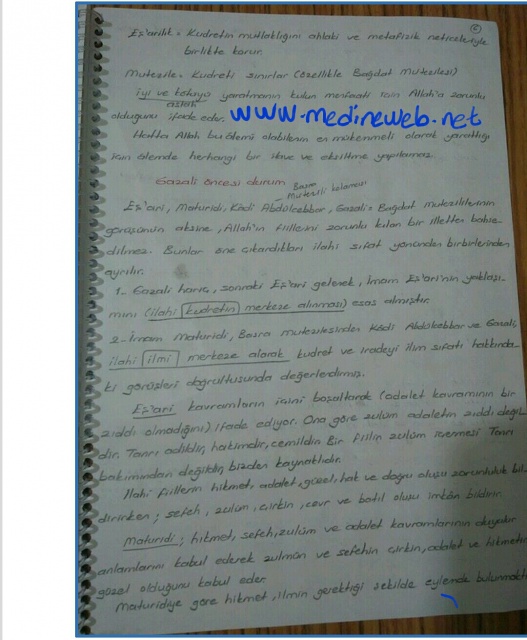 6
Eş'arilik: Kudretin mutlaklığını ahlaki ve metafizik neticeleriyle
birlikte korur.
Mutezile: Kudreti sınırlar (özellikle Bağdat Mutezilesi)
iyi ve kötüyü yaratmanın kulun menfaati için Allah'a zorunlu
aslah
olduğunu ifade eder. www.medineweb.net
Hatta Allah bu alemi olabilenin en mükemmeli olarak yarattığı
için alemde herhangi bir ilave ve eksiltme yapılamaz.
Gazali öncesi durum
Basra
Mutezili kelamcısı
Eş'ari, Maturidi, Kadi Abdülcebbar, Gazali: Bağdat mutezililerinin
görüşünün aksine, Allah'ın fiillerini zorunlu kılan bir illetten bahse-
dilmez. Bunlar öne çıkardıkları ilahi sıfat yönünden birbirlerinden
ayrılır.
1- Gazali hariç, sonraki Eş'ari gelenek, İmam Eş'ari'nin yaklaşı-
mını (ilahi kudretin merkeze alınması) esas almıştır.
2- İmam Maturidi, Basra mutezilesinden Kadi Abdülcebbar ve Gazali,
ilahi ilmi merkeze alarak kudret ve iradeyi ilim sıfatı hakkında-
ki görüşleri doğrultusunda değerlendirmiş.
Eş'ari kavramların içini boşaltarak (adalet kavramının bir
zıddı olmadığını) ifade ediyor. Ona göre zulüm adaletin zıddı değil-
dir. Tanrı adildir, hakimdir, cemildir. Bir fiilin zulüm içermesi Tanrı
bakımından değildir, bizden kaynaklıdır.
İlahi fiillerin hikmet, adalet, güzel, hak ve doğru oluşu zorunluluk bil-
dirirken; sefeh, zulüm, çirkin, cevr ve batıl oluşu imkan bildirir.
Maturidi; hikmet, sefeh, zulüm ve adalet kavramlarının
anlamlarını kabul ederek zulmün ve sefehin çirkin, adalet ve hikmetin
güzel olduğunu kabul eder.
Maturidiye göre hikmet, ilmin gerektiği şekilde eylemde bulunmaktı